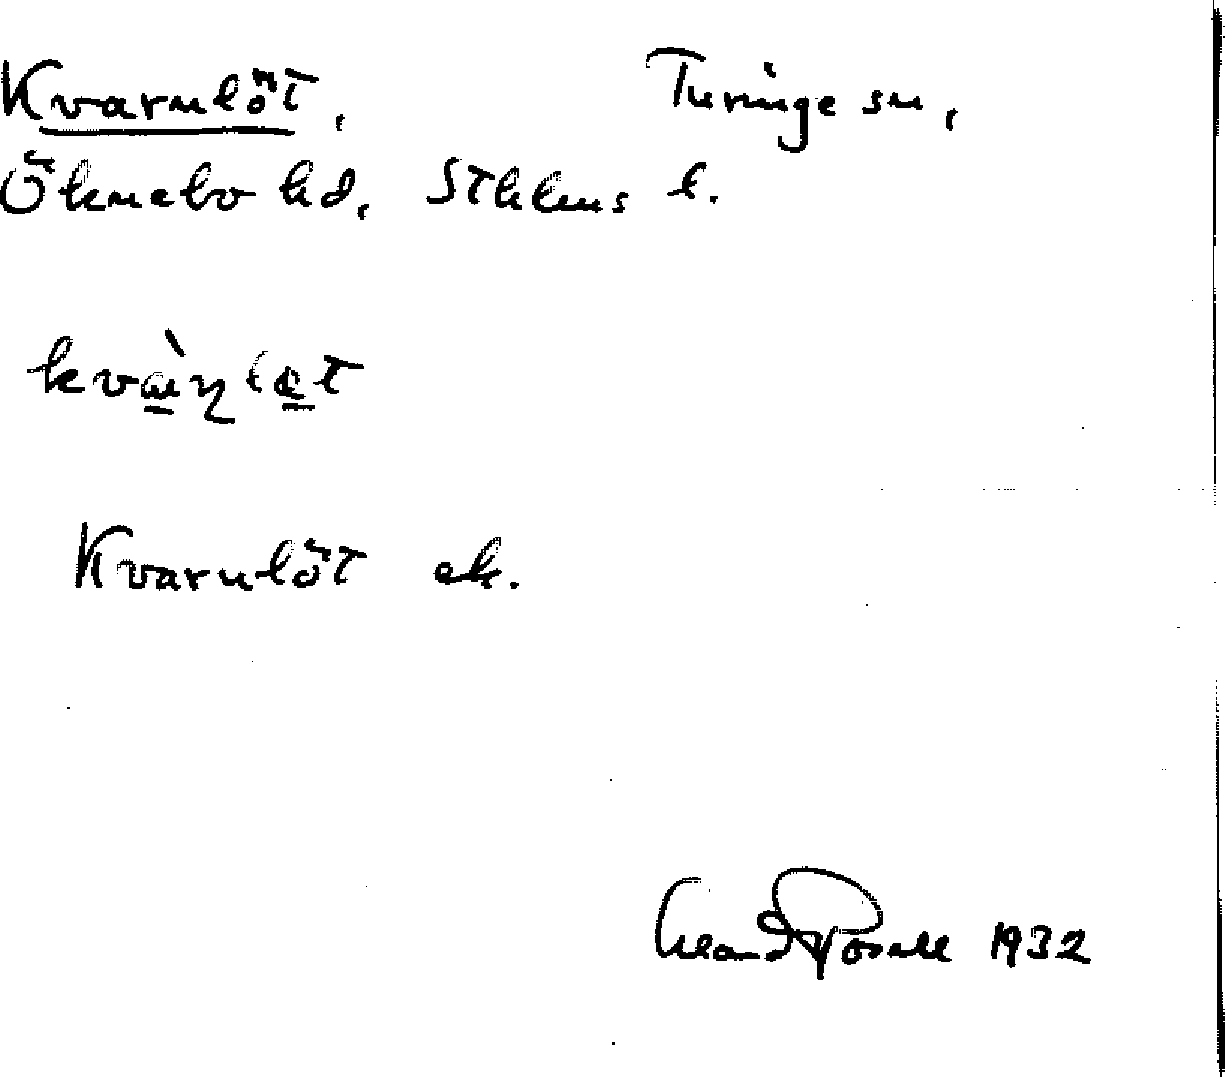 Kvarnlöt, Turinge sn,
Öknebo hd, Sthlms l.
Kvarnlöt ek.
1932